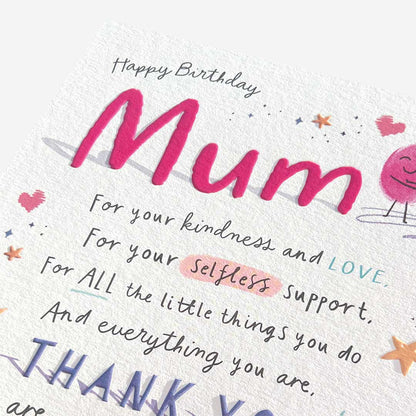 Happy Birthday
Mum
For your kindness and LOVE.
For your selfless support,
For ALL the little things you do
And everything you are,
THANK
are